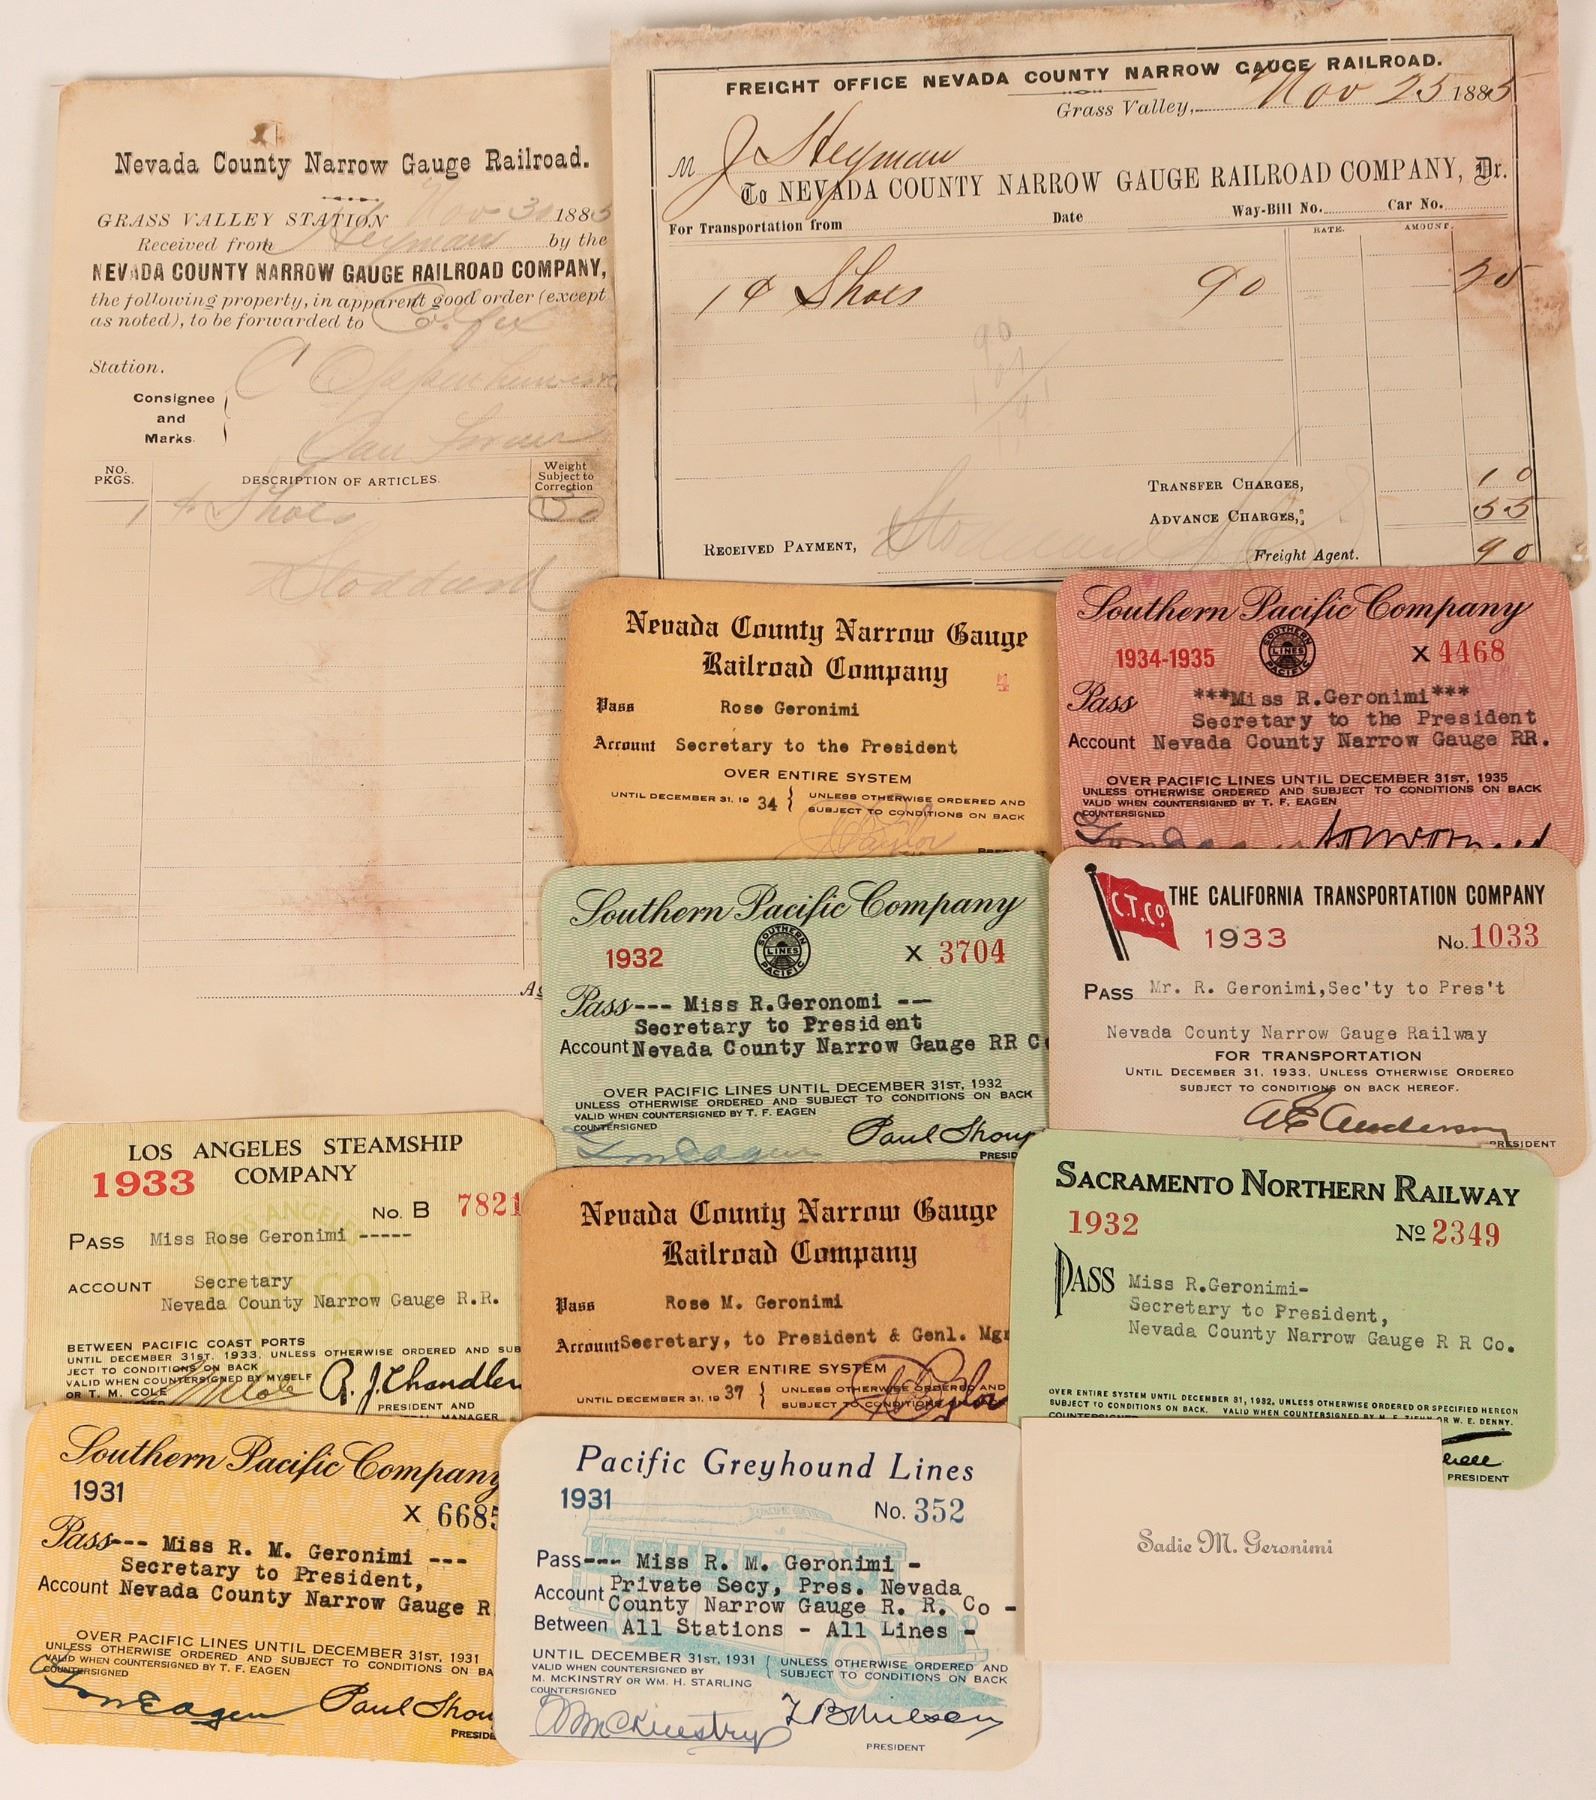 Nevada County Narrow Gauge Railroad.
GRASS VALLEY STATION Nov 30 1885
Received from Heyman by the
NEVADA COUNTY NARROW GAUGE RAILROAD COMPANY,
the following property, in apparent good order (except
as noted), to be forwarded to Colfax
Station.
Consignee
and
Marks.
C
San
NO.
PKGS.
DESCRIPTION OF ARTICLES.
Weight
Subject to
Correction
1 Shoes
Stoddard
FREIGHT OFFICE NEVADA COUNTY NARROW GAUGE RAILROAD.
Grass Valley, Nov 25 1885
M J Heyman
To NEVADA COUNTY NARROW GAUGE RAILROAD COMPANY, Dr.
For Transportation from Date Way-Bill No. Car No.
RATE. AMOUNT.
1 ¢ Shoes 90 25
90
TRANSFER CHARGES, 10
ADVANCE CHARGES, 55
RECEIVED PAYMENT, Freight Agent. 90
Nevada County Narrow Gauge
Railroad Company
4
Pass Rose Geronimi
Account Secretary to the President
OVER ENTIRE SYSTEM
UNTIL DECEMBER 31, 19 34 { UNLESS OTHERWISE ORDERED AND
SUBJECT TO CONDITIONS ON BACK
Southern Pacific Company
1934-1935 SOUTHERN PACIFIC LINES X 4468
Pass ***Miss R.Geronimi***
Secretary to the President
Account Nevada County Narrow Gauge RR.
OVER PACIFIC LINES UNTIL DECEMBER 31ST, 1935
UNLESS OTHERWISE ORDERED AND SUBJECT TO CONDITIONS ON BACK
VALID WHEN COUNTERSIGNED BY T. F. EAGEN
COUNTERSIGNED
Southern Pacific Company
1932 SOUTHERN PACIFIC LINES X 3704
Pass--- Miss R.Geronomi ---
Secretary to President
Account Nevada County Narrow Gauge RR C
OVER PACIFIC LINES UNTIL DECEMBER 31ST, 1932
UNLESS OTHERWISE ORDERED AND SUBJECT TO CONDITIONS ON BACK
VALID WHEN COUNTERSIGNED BY T. F. EAGEN
COUNTERSIGNED
Paul Shoup
PRESID
C.T.Co. THE CALIFORNIA TRANSPORTATION COMPANY
1933 No. 1033
PASS Mr. R. Geronimi,Sec'ty to Pres't
Nevada County Narrow Gauge Railway
FOR TRANSPORTATION
UNTIL DECEMBER 31, 1933, UNLESS OTHERWISE ORDERED
SUBJECT TO CONDITIONS ON BACK HEREOF.
A E Anderson
PRESIDENT
LOS ANGELES STEAMSHIP
COMPANY
1933
No. B 7821
PASS Miss Rose Geronimi -----
ACCOUNT Secretary
Nevada County Narrow Gauge R.R.
BETWEEN PACIFIC COAST PORTS
UNTIL DECEMBER 31ST, 1933, UNLESS OTHERWISE ORDERED AND SUB
JECT TO CONDITIONS ON BACK
VALID WHEN COUNTERSIGNED BY MYSELF
OR T. M. COLE
A. J. Chandler
PRESIDENT AND
MANAGER
Nevada County Narrow Gauge
Railroad Company
Pass Rose M. Geronimi
Account Secretary, to President & Genl. Mgr
OVER ENTIRE SYSTEM
UNTIL DECEMBER 31, 19 37 { UNLESS OTHERWISE ORDERED AND
SUBJECT TO CONDITIONS
SACRAMENTO NORTHERN RAILWAY
1932 No 2349
PASS Miss R.Geronimi-
Secretary to President,
Nevada County Narrow Gauge R R Co.
OVER ENTIRE SYSTEM UNTIL DECEMBER 31, 1932, UNLESS OTHERWISE ORDERED OR SPECIFIED HEREON
SUBJECT TO CONDITIONS ON BACK. VALID WHEN COUNTERSIGNED BY M. F. ZIEHN OR W. E. DENNY.
PRESIDENT
Southern Pacific Company
1931
X 6685
Pass--- Miss R. M. Geronimi ---
Secretary to President,
Account Nevada County Narrow Gauge R
OVER PACIFIC LINES UNTIL DECEMBER 31ST, 1931
UNLESS OTHERWISE ORDERED AND SUBJECT TO CONDITIONS ON BA
VALID WHEN COUNTERSIGNED BY T. F. EAGEN
COUNTERSIGNED
Paul Shou
PRESIDE
Pacific Greyhound Lines
1931 No. 352
Pass--- Miss R. M. Geronimi -
Account Private Secy, Pres. Nevada
County Narrow Gauge R. R. Co -
Between All Stations - All Lines -
UNTIL DECEMBER 31ST, 1931 { UNLESS OTHERWISE ORDERED AND
SUBJECT TO CONDITIONS ON BACK
VALID WHEN COUNTERSIGNED BY
M. MCKINSTRY OR WM. H. STARLING
COUNTERSIGNED
M McKinstry
PRESIDENT
Sadie M. Geronimi